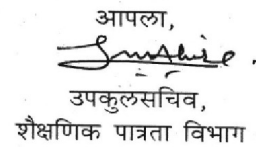 आपला,
उपकुलसचिव,
शैक्षणिक पात्रता विभाग